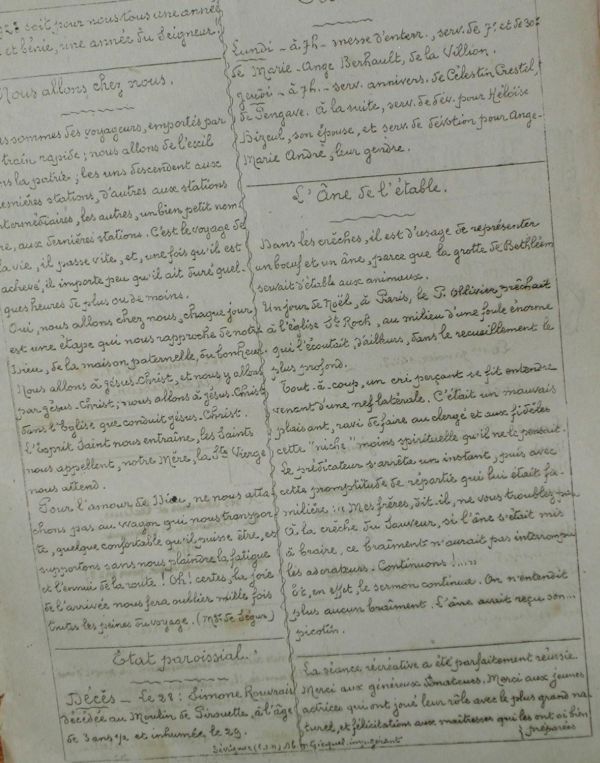 soit pour nous tous une année
et bénie, une année du Seigneur."
Nous allons chez nous.
sommes des voyageurs, emportés par
train rapide ; nous allons de l'exil
la patrie ; les uns descendent aux
premières stations, d'autres aux stations
intermédiaires, les autres, un bien petit nom-
re, aux dernières stations. C'est le voyage de
la vie, il passe vite, et, une fois qu'il est
achevé, il importe peu qu'il ait duré quel-
ques heures de plus ou de moins.
Oui, nous allons chez nous, chaque jour
est une étape qui nous rapproche de notre
Dieu, de la maison paternelle, du bonheur.
Nous allons à Jésus-Christ, et nous y allons
par Jésus-Christ ; nous allons à Jésus-Christ
dans l'Eglise que conduit Jésus-Christ.
L'Esprit Saint nous entraîne, les Saints
nous appellent, notre Mère, la Ste Vierge
nous attend.
Pour l'amour de Dieu, ne nous atta
chons pas au wagon qui nous transpor-
te, quelque confortable qu'il puisse être, et
supportons sans nous plaindre la fatigue
et l'ennui de la route ! Oh ! certes, la joie
de l'arrivée nous fera oublier mille fois
toutes les peines du voyage. (Mgr de Ségur)
Etat paroissial.
Décès - Le 28 : Simone Rouvrais
décédée au Moulin de Pirouette, à l'âge
de 3 ans ½ et inhumée le 29.
Lundi - à 7h - messe d'enterr., serv. de 7e et de 30e
de Marie-Ange Berhault, de la Villion.
Jeudi - à 7h. - serv. annivers. de Célestin Crestel,
de Pengave. à la suite, serv. de dév. pour Héloïse
Bizeul, son épouse, et serv. de dévotion pour Ange-
Marie André, leur gendre.
L'Âne de l'étable.
Dans les crèches, il est d'usage de représenter
un boeuf et un âne, parce que la grotte de Bethléem
servait d'étable aux animaux.
Un jour de Noël, à Paris, le P. Ollivier prêchait
à l'église St Roch, au milieu d'une foule énorme
qui l'écoutait, d'ailleurs, dans le recueillement le
plus profond.
Tout-à-coup, un cri perçant se fit entendre
venant d'une nef latérale. C'était un mauvais
plaisant, ravi de faire au clergé et aux fidèles
cette "niche" moins spirituelle qu'il ne le pensait.
Le prédicateur s'arrête un instant, puis avec
cette promptitude de répartie qui lui était fa-
milière : "Mes frères, dit-il, ne vous troublez pas
à la crèche du Sauveur, si l'âne s'était mis
à braire, ce braîment n'aurait pas interrompu
les adorateurs. Continuons !....."
Et, en effet, le sermon continua. On n'entendit
plus aucun braîment. L'âne avait reçu son...
picotin.
La séance récréative a été parfaitement réussie.
Merci aux généreux Amateurs. Merci aux jeunes
actrices qui ont joué leur rôle avec le plus grand na-
turel, et félicitations aux maîtresses qui les ont si bien
préparées
Sévignac imp.gérant